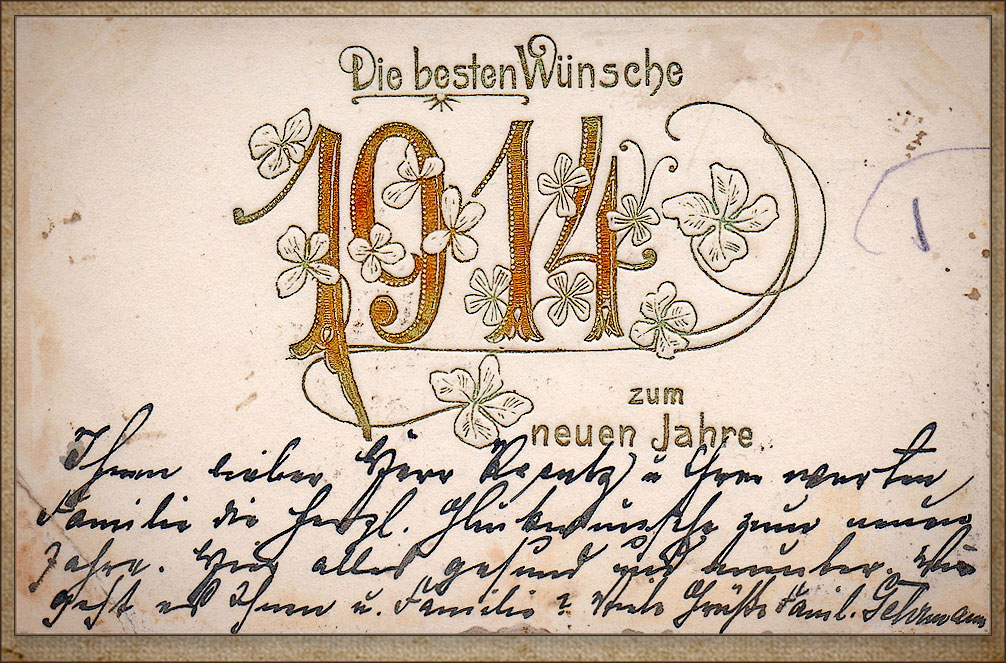 Die besten Wünsche
1914
zum
neuen Jahre
Ihnen lieber Herr u Ihrer werten
Familie die herzl. Glückwünsche zum neuen
Jahre. Hier alles gesund und munter. Wie
geht es Ihnen u. Familie? Viele Grüße Famil. Gehrmann